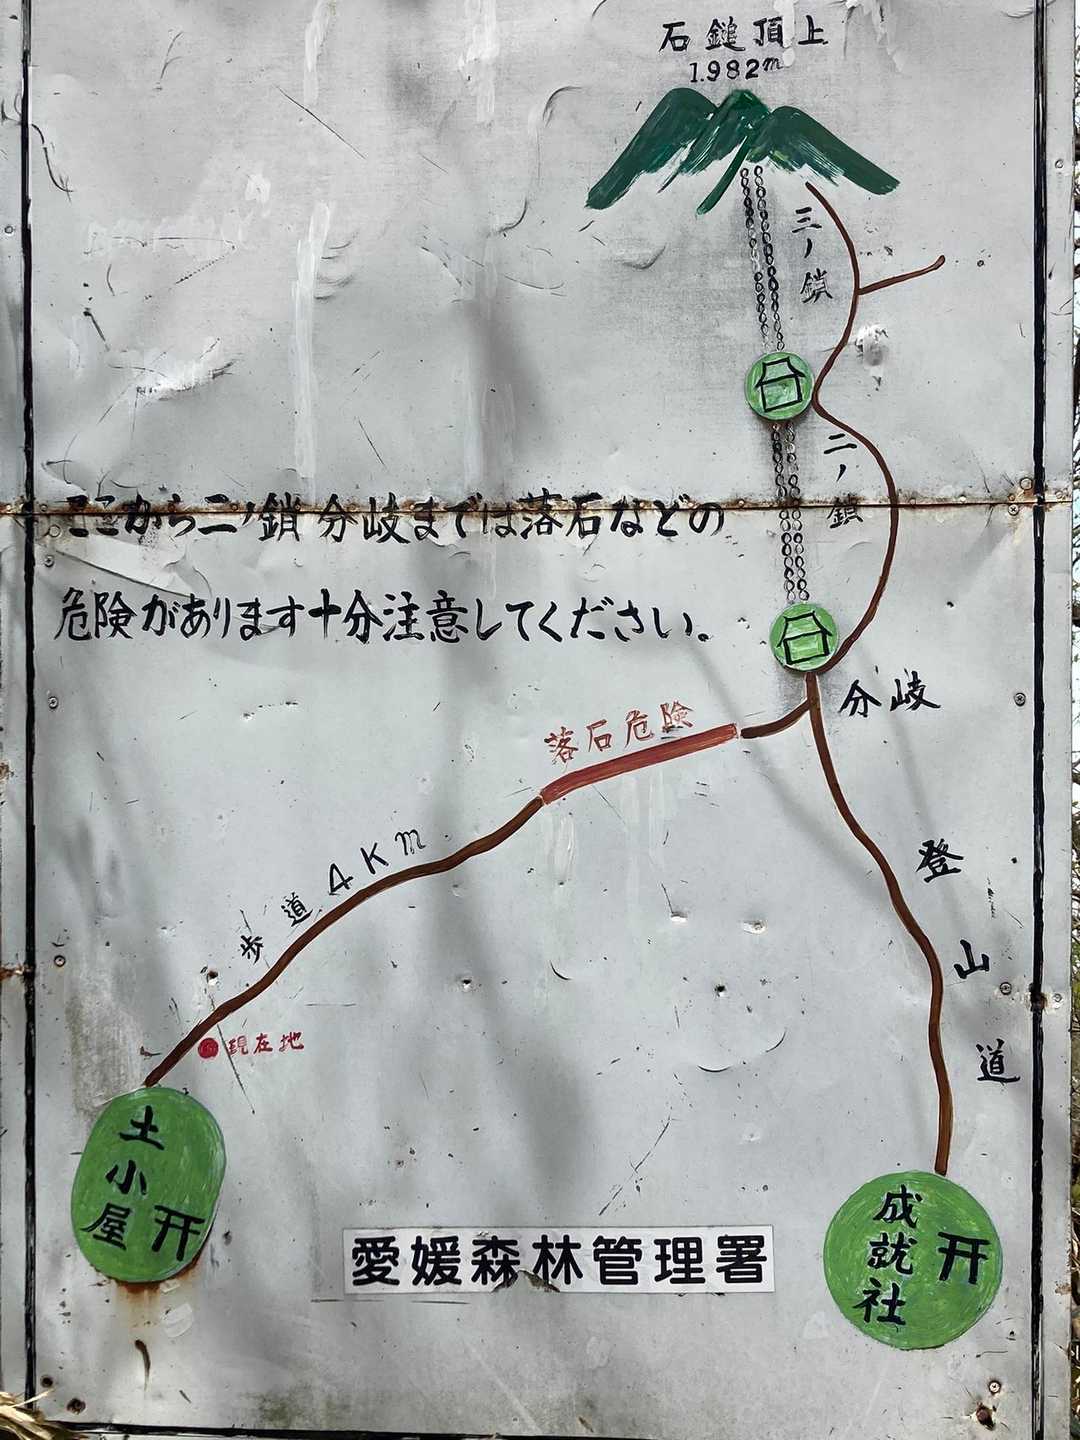 石鎚頂上
1.982m
三ノ鎖
二ノ鎖
ここから二ノ鎖分岐までは落石などの
危険があります十分注意してください。
分岐
落石危険
歩道4Km
登山道
現在地
土小屋
成就社
愛媛森林管理署